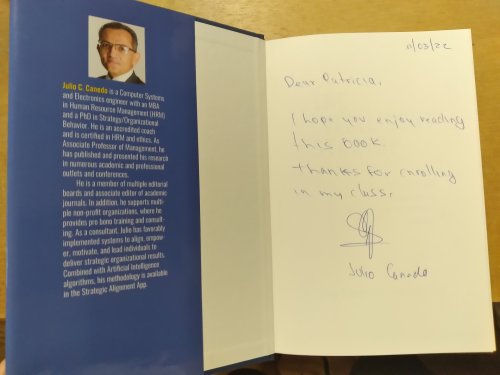 Julio C. Canedo is a Computer Systems
and Electronics engineer with an MBA
in Human Resource Management (HRM)
and a PhD in Strategy/Organizational
Behavior. He is an accredited coach
and is certified in HRM and ethics. As
Associate Professor of Management, he
has published and presented his research
in numerous academic and professional
outlets and conferences.
He is a member of multiple editorial
boards and associate editor of academic
journals. In addition, he supports multi-
ple non-profit organizations, where he
provides pro bono training and consult-
ing. As a consultant, Julio has favorably
implemented systems to align, empow-
er, motivate, and lead individuals to
deliver strategic organizational results.
Combined with Artificial Intelligence
algorithms, his methodology is available
in the Strategic Alignment App.
/03/22
Dear Patricia,
I hope you enjoy reading
this book.
Thanks for enrolling
in my class.
Julio Canedo